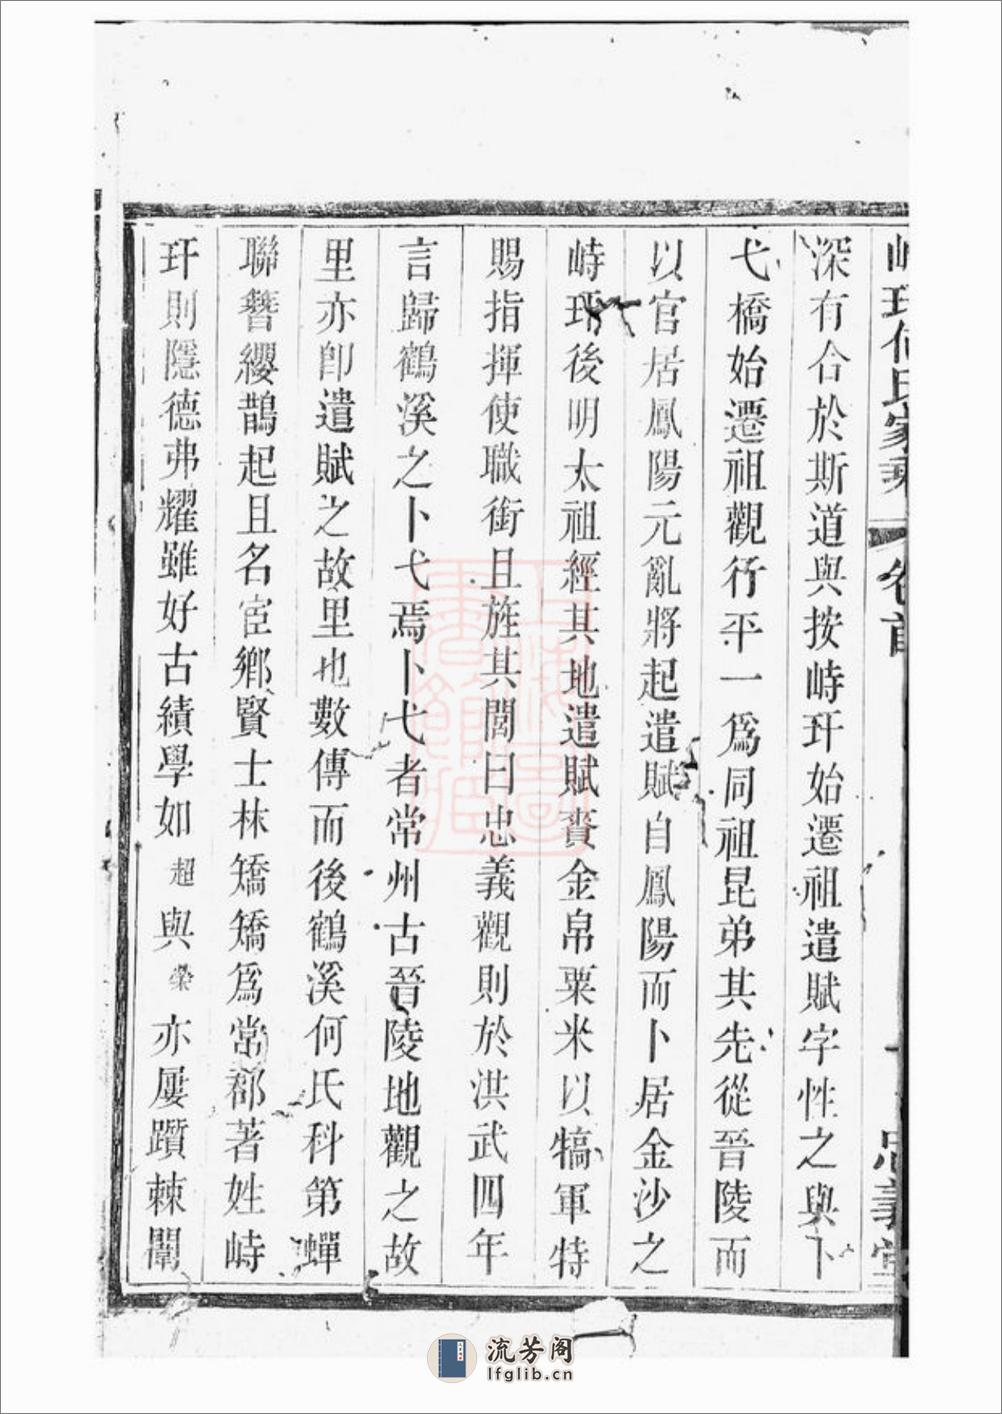 峙玗何氏家乘 卷首 忠義堂
深有合於斯道與按峙玗始遷祖遣賦字性之與卜
弋橋始遷祖觀行平一爲同祖昆弟其先從晉陵而
以官居鳳陽元亂將起遣賦自鳳陽而卜居金沙之
峙玗後明太祖經其地遣賦賚金帛粟米以犒軍特
賜指揮使職銜且旌其閭曰忠義觀則於洪武四年
言歸鶴溪之卜弋焉卜弋者常州古晉陵地觀之故
里亦卽遣賦之故里也數傳而後鶴溪何氏科第蟬
聯簪纓鵲起且名宦鄉賢士林矯矯爲常郡著姓峙
玗則隱德弗耀雖好古績學如超與榮亦屢躓棘闈
流芳阁
lfglib.cn